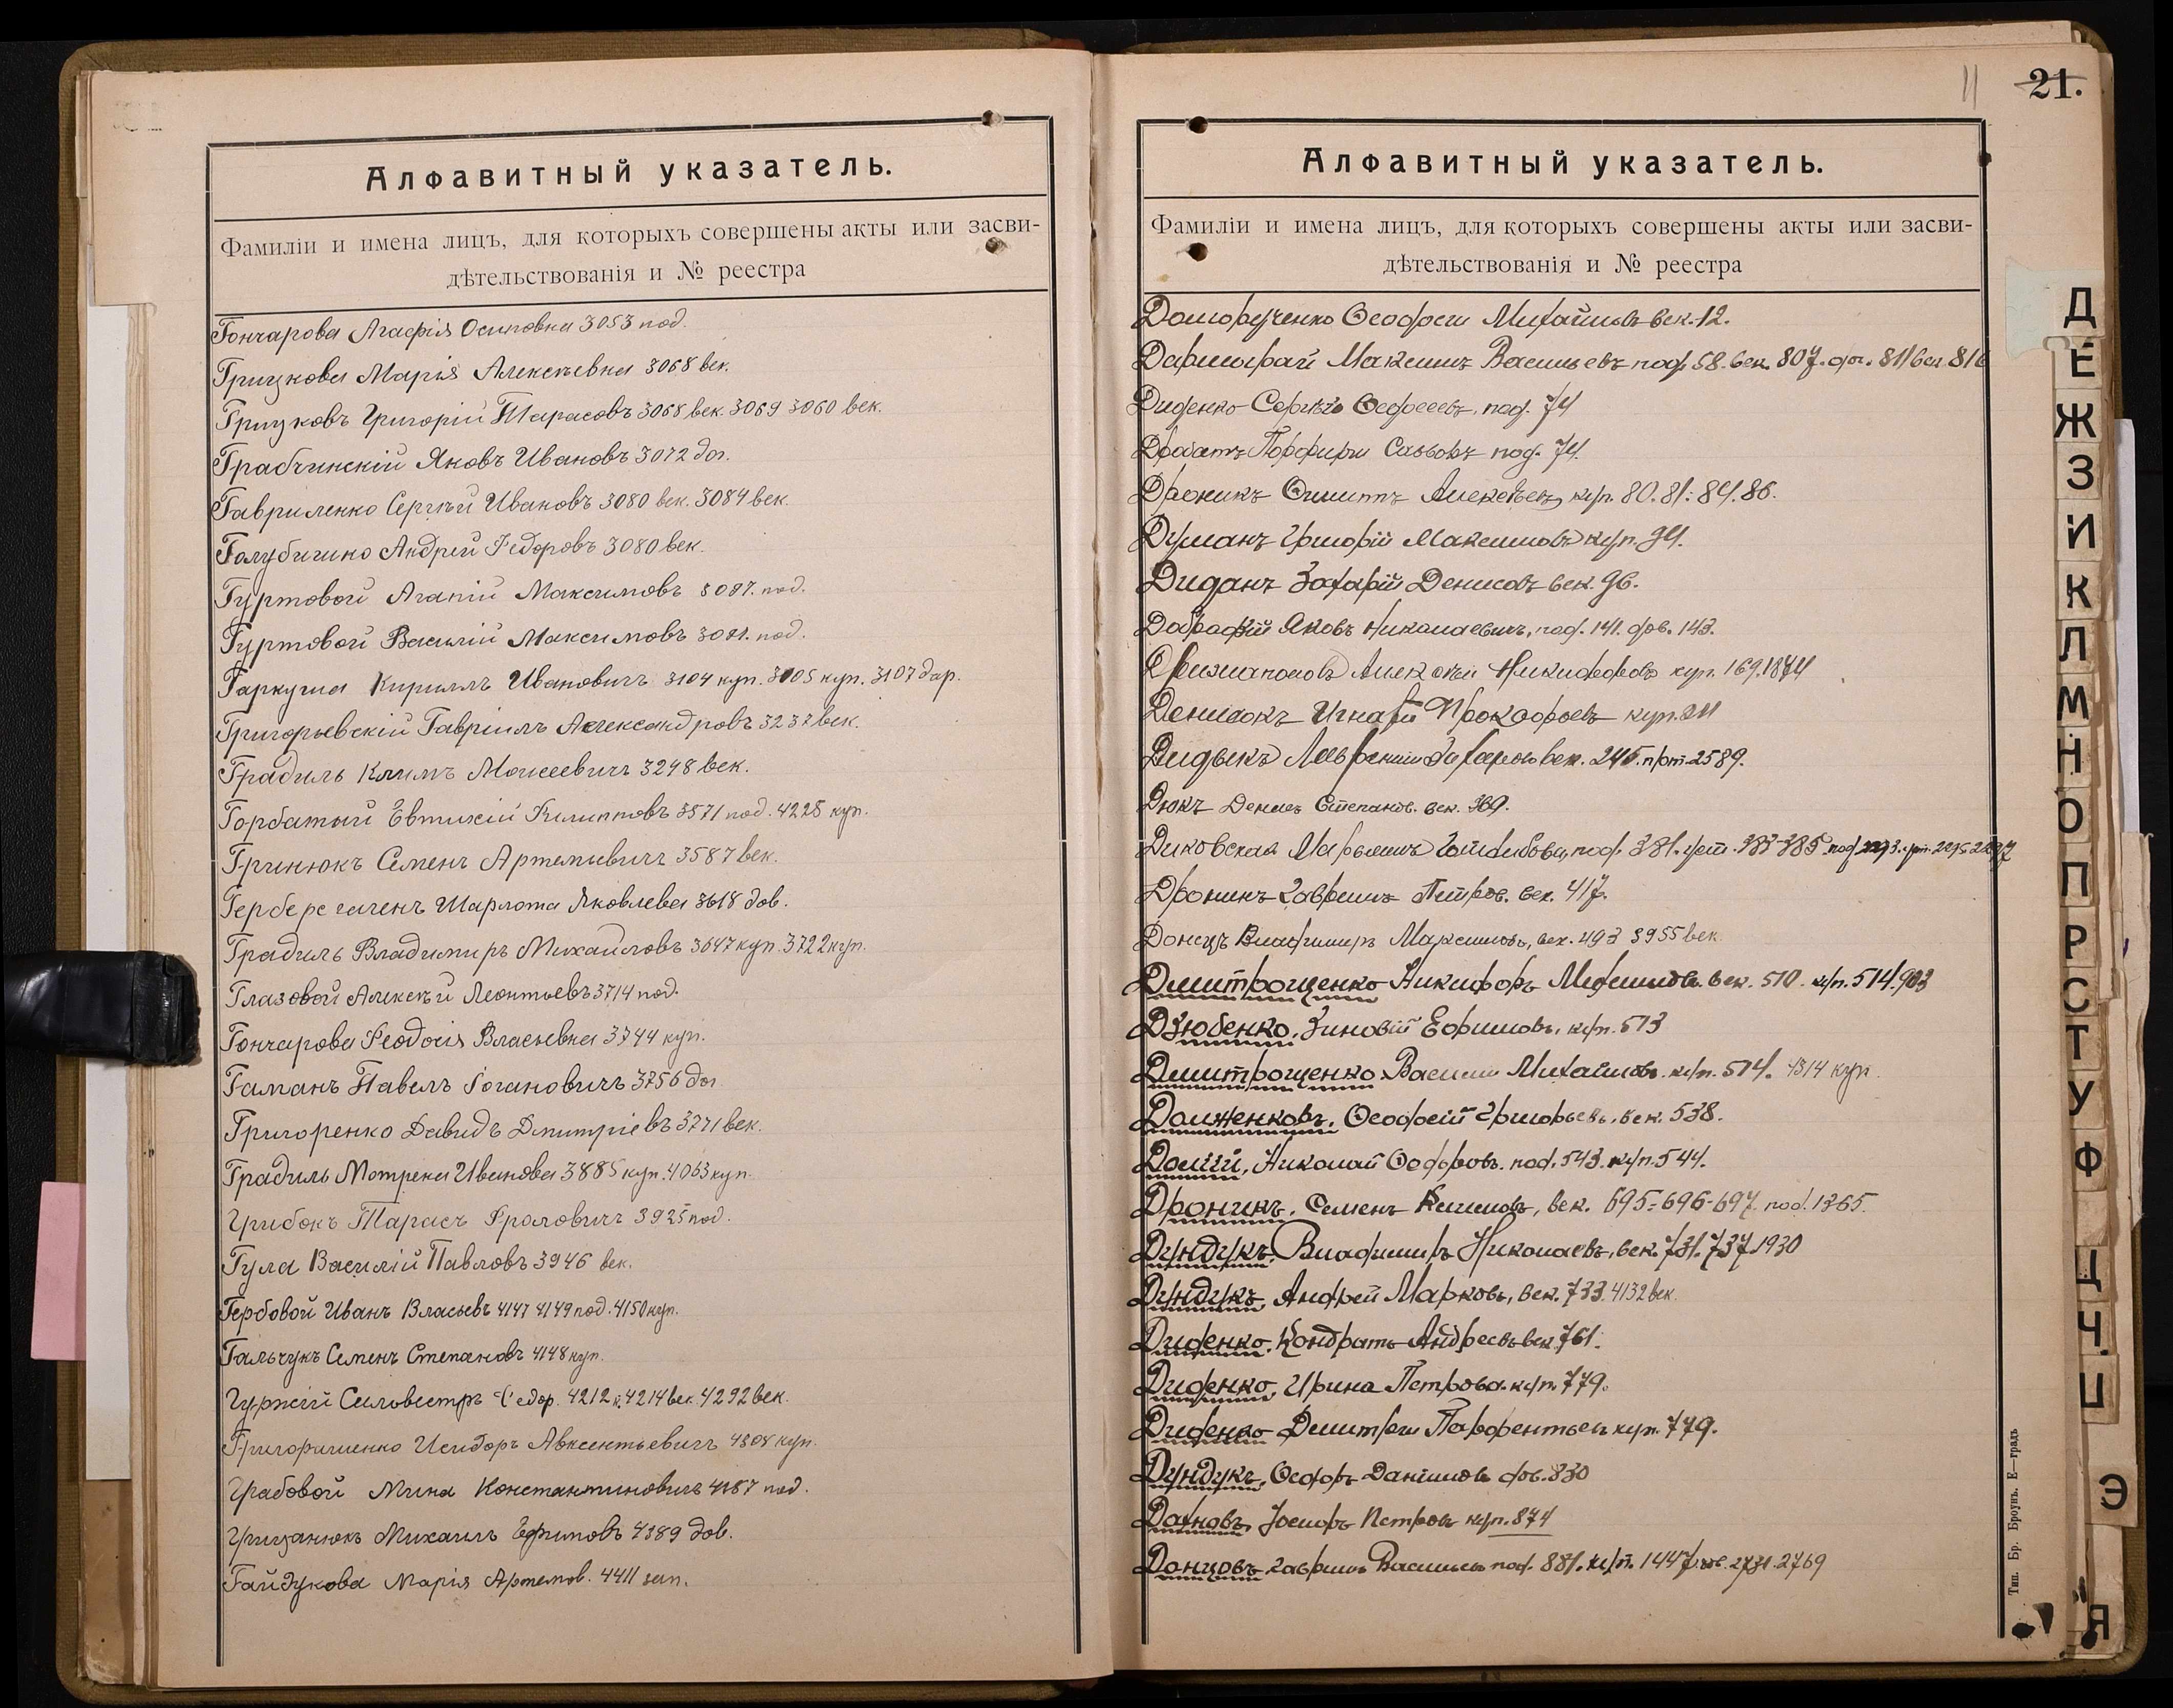 Алфавитный указатель.
Фамиліи и имена лицъ, для которыхъ совершены акты или засви-
дѣтельствованія и № реестра
Гончарова Агафія Осиповна 3053 под.
Грицкова Марія Алексѣевна 3068 век.
Грицковъ Григорій Тарасовъ 3068 век. 3069 3060 век.
Грабчинскій Яковъ Ивановъ 3072 дог.
Гавриленко Сергѣй Ивановъ 3080 век. 3084 век.
Андрей Федоровъ 3080 век.
Гуртовой Агапій Максимовъ 3087. под.
Гуртовой Василій Максимовъ под.
Гаркуша Кириллъ Ивановичъ 3104 куп. 3105 куп. 3107 дар.
Григорьевскій Гавріилъ Александровъ 3237 век.
Градиль Климъ Моисеевичъ 3248 век.
Горбатый Евтихій Филипповъ 3571 под. 4228 куп.
Гринюкъ Семенъ Артемиевичъ 3587 век.
Шарлота Яковлева 3618 дов.
Градиль Владимиръ Михайловъ 3647 куп. 3722 куп.
Глазовой Алексѣй Леонтьевъ 3714 под.
Гончарова Феодосія Власьевна 3744 куп.
Гаманъ Павелъ 3756 дог
Григоренко Давидъ Дмитріевъ 3271 век.
Градиль Мотрена Иванова 3885 куп. 4063 куп.
Грибокъ Тарасъ Фроловичъ 3925 под.
Гула Василій Павловъ 3946 век.
Гербовой Иванъ Власьевъ 4147 4149 под. 4150 куп.
Гальчукъ Семенъ Степановъ 4148 куп.
Гуржій Силовестръ Федор. 4212 к. 4214 век. 4292 век.
Исидоръ Авксентьевичъ 4308 куп.
Грабовой Мина Константиновичъ под.
Грицанюкъ Михаилъ Ефимовъ 4389 дов.
Гайдукова Марія Артемов. 4411
11 21.
Алфавитный указатель.
Фамиліи и имена лицъ, для которыхъ совершены акты или засви-
дѣтельствованія и № реестра
Михайловъ век. 12.
Максимъ Васильевъ под. 58. век. 807. 811 век 816
Диденко под. 74
Порфирій Саввовъ под. 74.
Дроникъ Филиппъ Алексѣевъ куп. 80. 81. 84. 86.
Думанъ Григорій Максимовъ куп. 94.
Диданъ Захарій Денисовъ век. 96.
Яковъ Николаевичъ, под. 141. дов. 143.
Алексѣй Никифоровъ куп. 169. 1874
Денисокъ Игнатій Прокофьевъ куп.
Дидыкъ век. 245. 2589.
Дюкъ Денисъ Степанов. век. 369.
Диковская под. 381. 383-385
Дроникъ Гавріилъ Петров. век. 417.
Донецъ Владимиръ Максимовъ, век. 493 3955 век.
Дмитрощенко Никифоръ век. 510. куп. 514. 903
Дзюбенко, Зиновій Ефимовъ, куп. 513
Дмитрощенко Василій Михайловъ куп. 514. 4314 куп.
Долженковъ, Федосій Григорьевъ, век. 538.
Долгій, Николай Федоровъ. под. 543. куп. 544.
Дроникъ, Семенъ век. 695-696-697. под. 1365.
Дундукъ, Владимиръ Николаевъ, век. 731. 737. 1930
Дундукъ, Андрей Марковъ, век. 733. 4132 век.
Диденко, Кондратъ Андреевъ век. 761.
Диденко, Ирина Петрова куп. 779.
Диденко Дмитрій Парфентьевъ куп. 779.
Дундукъ, Федоръ Даніиловъ дов. 830
Дахновъ, Іосифъ Петровъ куп. 874
Донцовъ, Гавріилъ Васильевъ под. 881. 1447. 2731. 2769
Тип. Бр. Броунъ. Е—градъ
Д
Е
Ж
З
И
К
Л
М
Н
О
П
Р
С
Т
У
Ф
Ц
Ч.
Э
Я